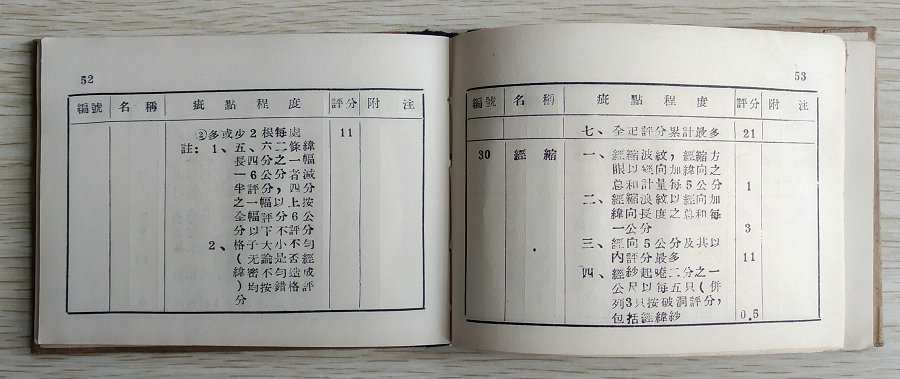 52
編號 名稱 疵點程度 評分 附注
②多或少2根每处 11
註：1、五、六二條緯
長四分之一幅
—6公分者減
半評分，四分
之一幅以上按
全幅評分6公
分以下不評分
2、格子大小不勻
(无論是否經
緯密不勻造成
)均按錯格評
分
53
編號 名稱 疵點程度 評分 附注
七、全疋評分累計最多 21
30 經縮 一、經縮波紋，經縮方
眼以經向加緯向之
总和計量每5公分 1
二、經縮浪紋以經向加
緯向長度之总和每
一公分 3
三、經向5公分及其以
內評分最多 11
四、經紗起疙二分之一
公尺以每五只(併
列3只按破洞評分，
包括經緯紗 0.5